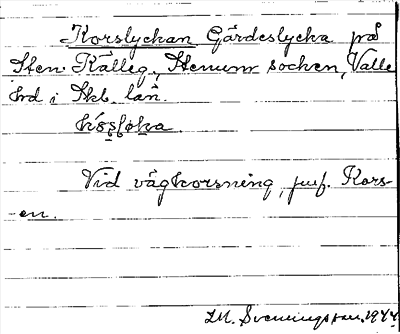 Korslyckan Gärdeslycka på
Sten Källeg., Stenums socken, Valle
hrd i Skbl. län.
Vid vägkorsning, jmf. Kors-
en.
I.M. Svenningsson, 1944